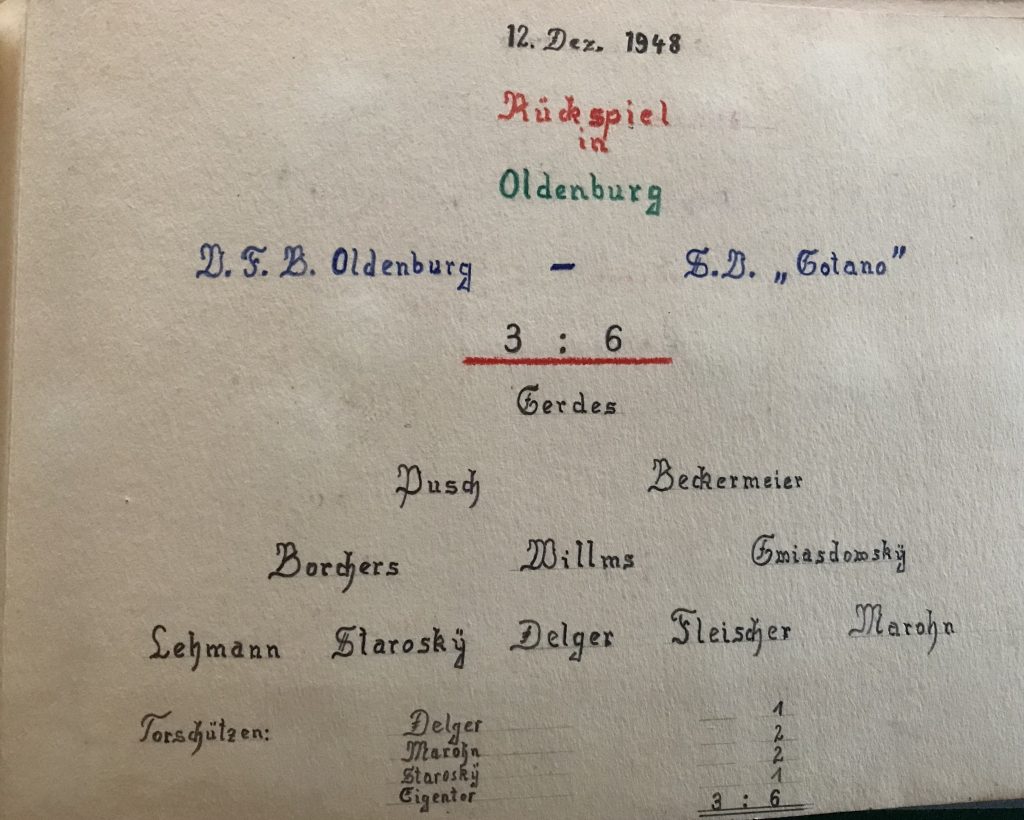 12. Dez. 1948
Rückspiel
in
Oldenburg
V. F. B. Oldenburg – S.V. „Gotano”
3 : 6
Gerdes
Pusch Beckermeier
Borchers Willms Gwiasdowskÿ
Lehmann Staroskÿ Delger Fleischer Marohn
Torschützen: Delger 1
Marohn 2
Staroskÿ 2
Eigentor 1
3 : 6